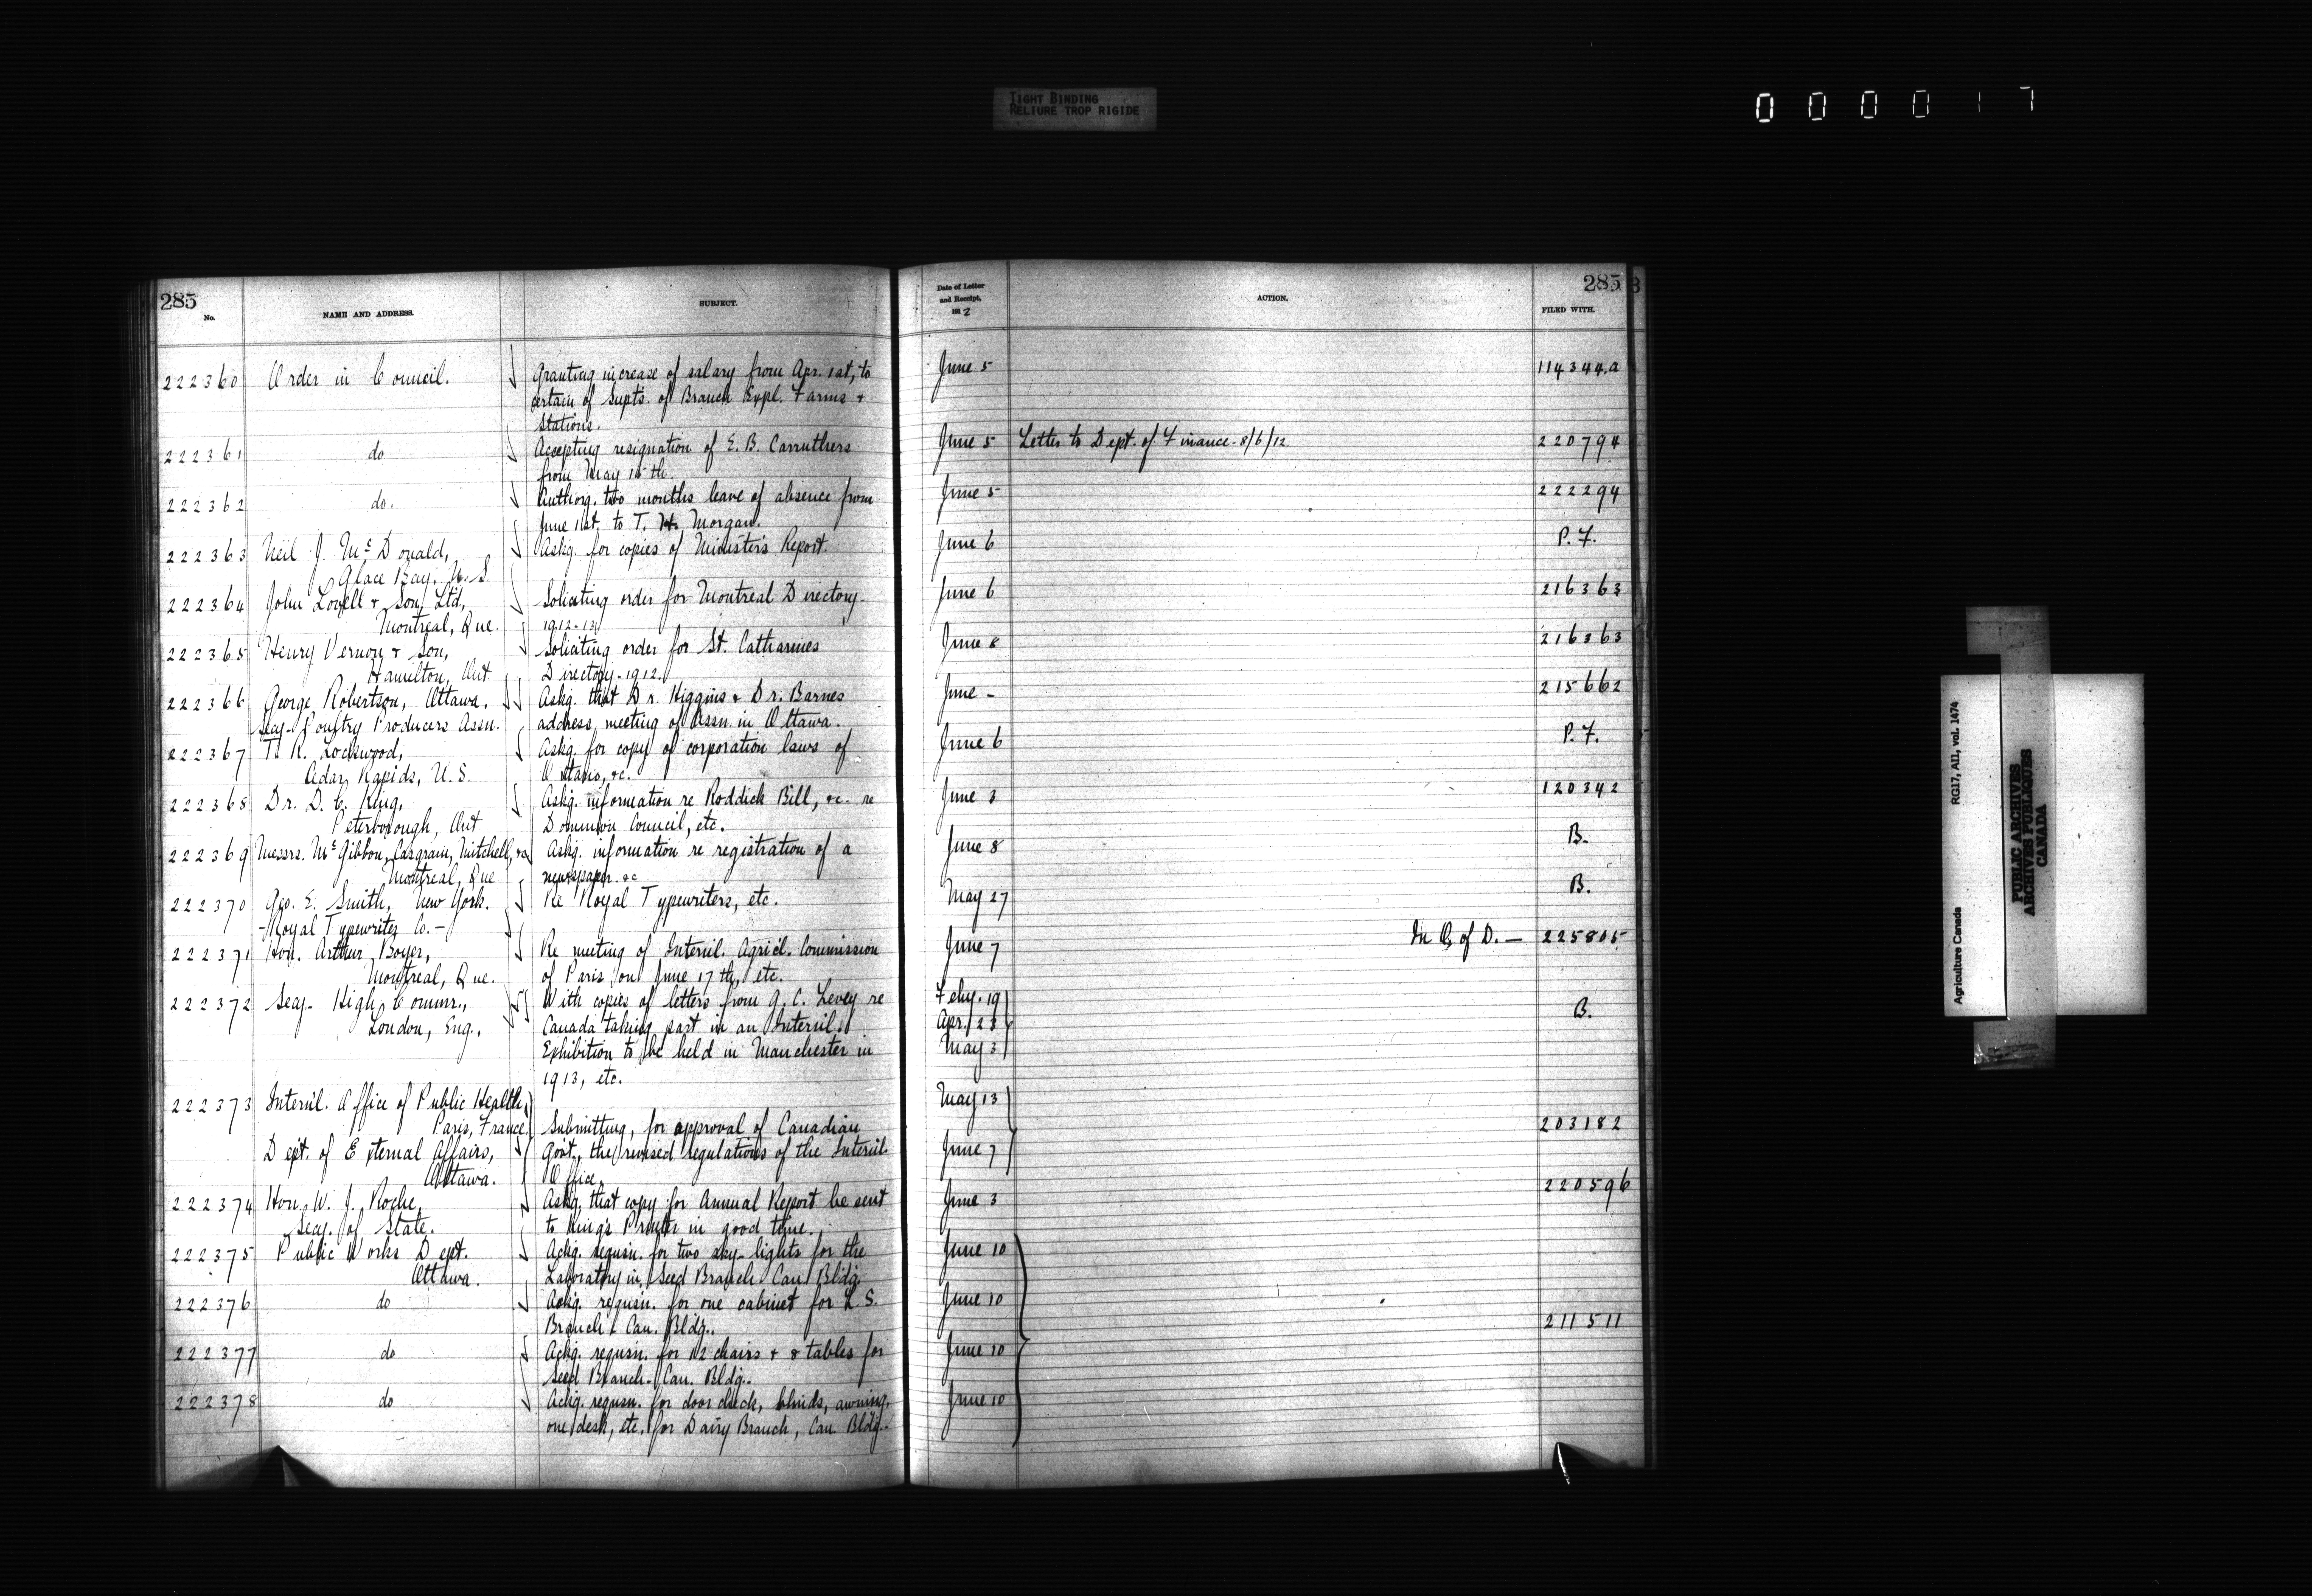 TIGHT BINDING
RELIURE TROP RIGIDE
0 0 0 0 1 7
285
No.
NAME AND ADDRESS.
SUBJECT.
222360 Order in Council. Granting increase of salary from Apr. 1st, to
certain of Supts. of Branch Expl. Farms +
Stations.
222361 do Accepting resignation of E. B. Carruthers
from May 15th.
222362 do. Authorg. two months leave of absence from
June 1st. to T. Morgan.
222363 Neil J. McDonald, Askg. for copies of Minister's Report.
Glace Bay. N. S.
222364 John Lovell + Son, Ltd, Soliciting order for Montreal Directory-
Montreal, Que. 1912-13.
222365 Henry Vernon + Son, Soliciting order for St. Catharines
Hamilton, Ont Directory-1912.
222366 George Robertson, Ottawa. Askg. that Dr. Higgins + Dr. Barnes
Secy- Poultry Producers Assn. address meeting of Assn. in Ottawa.
222367 Lockwood, Askg. for copy of corporation laws of
Cedar Rapids, U. S. Ontario, &c.
222368 Dr. D. C. King, Askg. information re Roddick Bill, &c. re
Peterborough, Ont Dominion Council, etc.
222369 Messrs. McGibbon, Casgrain, Mitchell, &c Askg. information re registration of a
Montreal, Que newspaper. &c
222370 Geo. E. Smith, New York. Re Royal Typewriters, etc.
-Royal Typewriter Co.-
222371 Hon. Arthur Boyer, Re meeting of Internl. Agricl. Commission
Montreal, Que. of Paris on June 17th, etc.
222372 Secy- High Commr., With copies of letters from G. C. Levey re
London, Eng., Canada taking part in an Internl.
Exhibition to be held in Manchester in
1913, etc.
222373 Internl. Office of Public Health,
Paris, France. Submitting, for approval of Canadian
Dept. of External Affairs, Govt., the revised regulations of the Internl.
Ottawa. Office.
222374 Hon. W. J. Roche, Askg. that copy for Annual Report be sent
Secy. of State. to King's Printer in good time.
222375 Public Works Dept. Ackg. requsn. for two sky-lights for the
Ottawa. Laboratory in Seed Branch Can Bldg.
222376 do Ackg. requsn. for one cabinet for L. S.
Branch- Can. Bldg..
222377 do Ackg. requsn. for 12 chairs + 8 tables for
Seed Branch- Can. Bldg..
222378 do Ackg. requsn. for door check, blinds, awning,
one desk, etc. for Dairy Branch, Can. Bldg..
Date of Letter
and Receipt,
191 2
ACTION.
285
FILED WITH.
June 5 114344.a
June 5 Letter to Dept. of Finance - 8/6/12 220794
June 5 222294
June 6 P. F.
June 6 216363
June 8 216363
June - 215662
June 6 P. F.
June 3 120342
June 8 B.
May 27 B.
June 7 of D. — 225805
Feby. 19
Apr. 23 B.
May 3
May 13
203182
June 7
June 3 220596
June 10
June 10
211511
June 10
June 10
Agriculture Canada RG17, AII, vol. 1474
PUBLIC ARCHIVES
ARCHIVES PUBLIQUES
CANADA